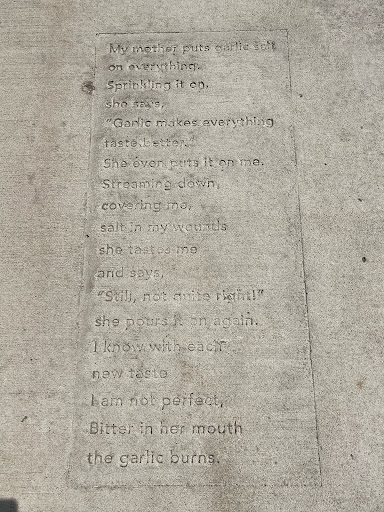 My mother puts garlic salt
on everything.
Sprinkling it on,
she says,
"Garlic makes everything
taste better."
She even puts it on me.
Streaming down,
covering me,
salt in my wounds
she tastes me
and says,
"Still, not quite right!"
she pours it on again.
I know with each
new taste
I am not perfect,
Bitter in her mouth
the garlic burns.